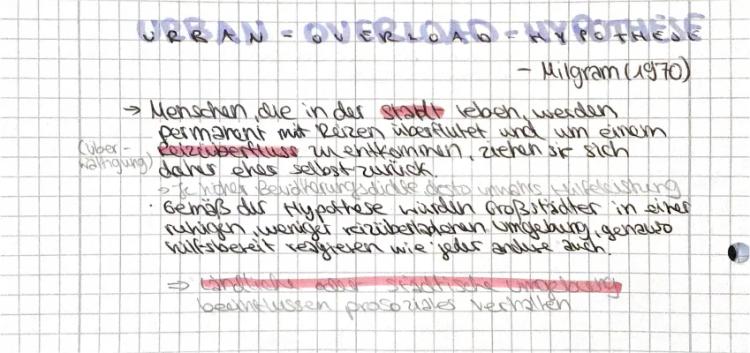 URBAN - OVERLOAD - HYPOTHESE
- Milgram (1970)
→ Menschen, die in der Stadt leben, werden
permanent mit Reizen überflutet und um einem
(Über-wältigung) Reizüberfluss zu entkommen, ziehen sie sich
daher eher selbst zurück.
→ Je höher Bevölkerungsdichte desto unwahrs. Hilfeleistung
· Gemäß der Hypothese würden Großstädter in einer
ruhigen, weniger reizüberladenen Umgebung, genauso
hilfsbereit reagieren wie jeder andere auch.
⇒ Ländliche oder städtische Umgebung
beeinflussen prosoziales Verhalten